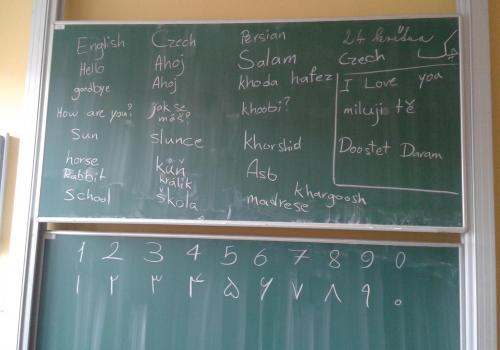 English Czech Persian 24 křídou
Hello Ahoj Salam Czech
goodbye Ahoj khoda hafez I Love you
How are you? jak se máš? khoobi? miluji tě
Sun slunce khorshid Doostet Daram
horse kůň Asb
Rabbit králík khargoosh
School škola madrese
1 2 3 4 5 6 7 8 9 0
۱ ۲ ۳ ۴ ۵ ۶ ۷ ۸ ۹ ۰